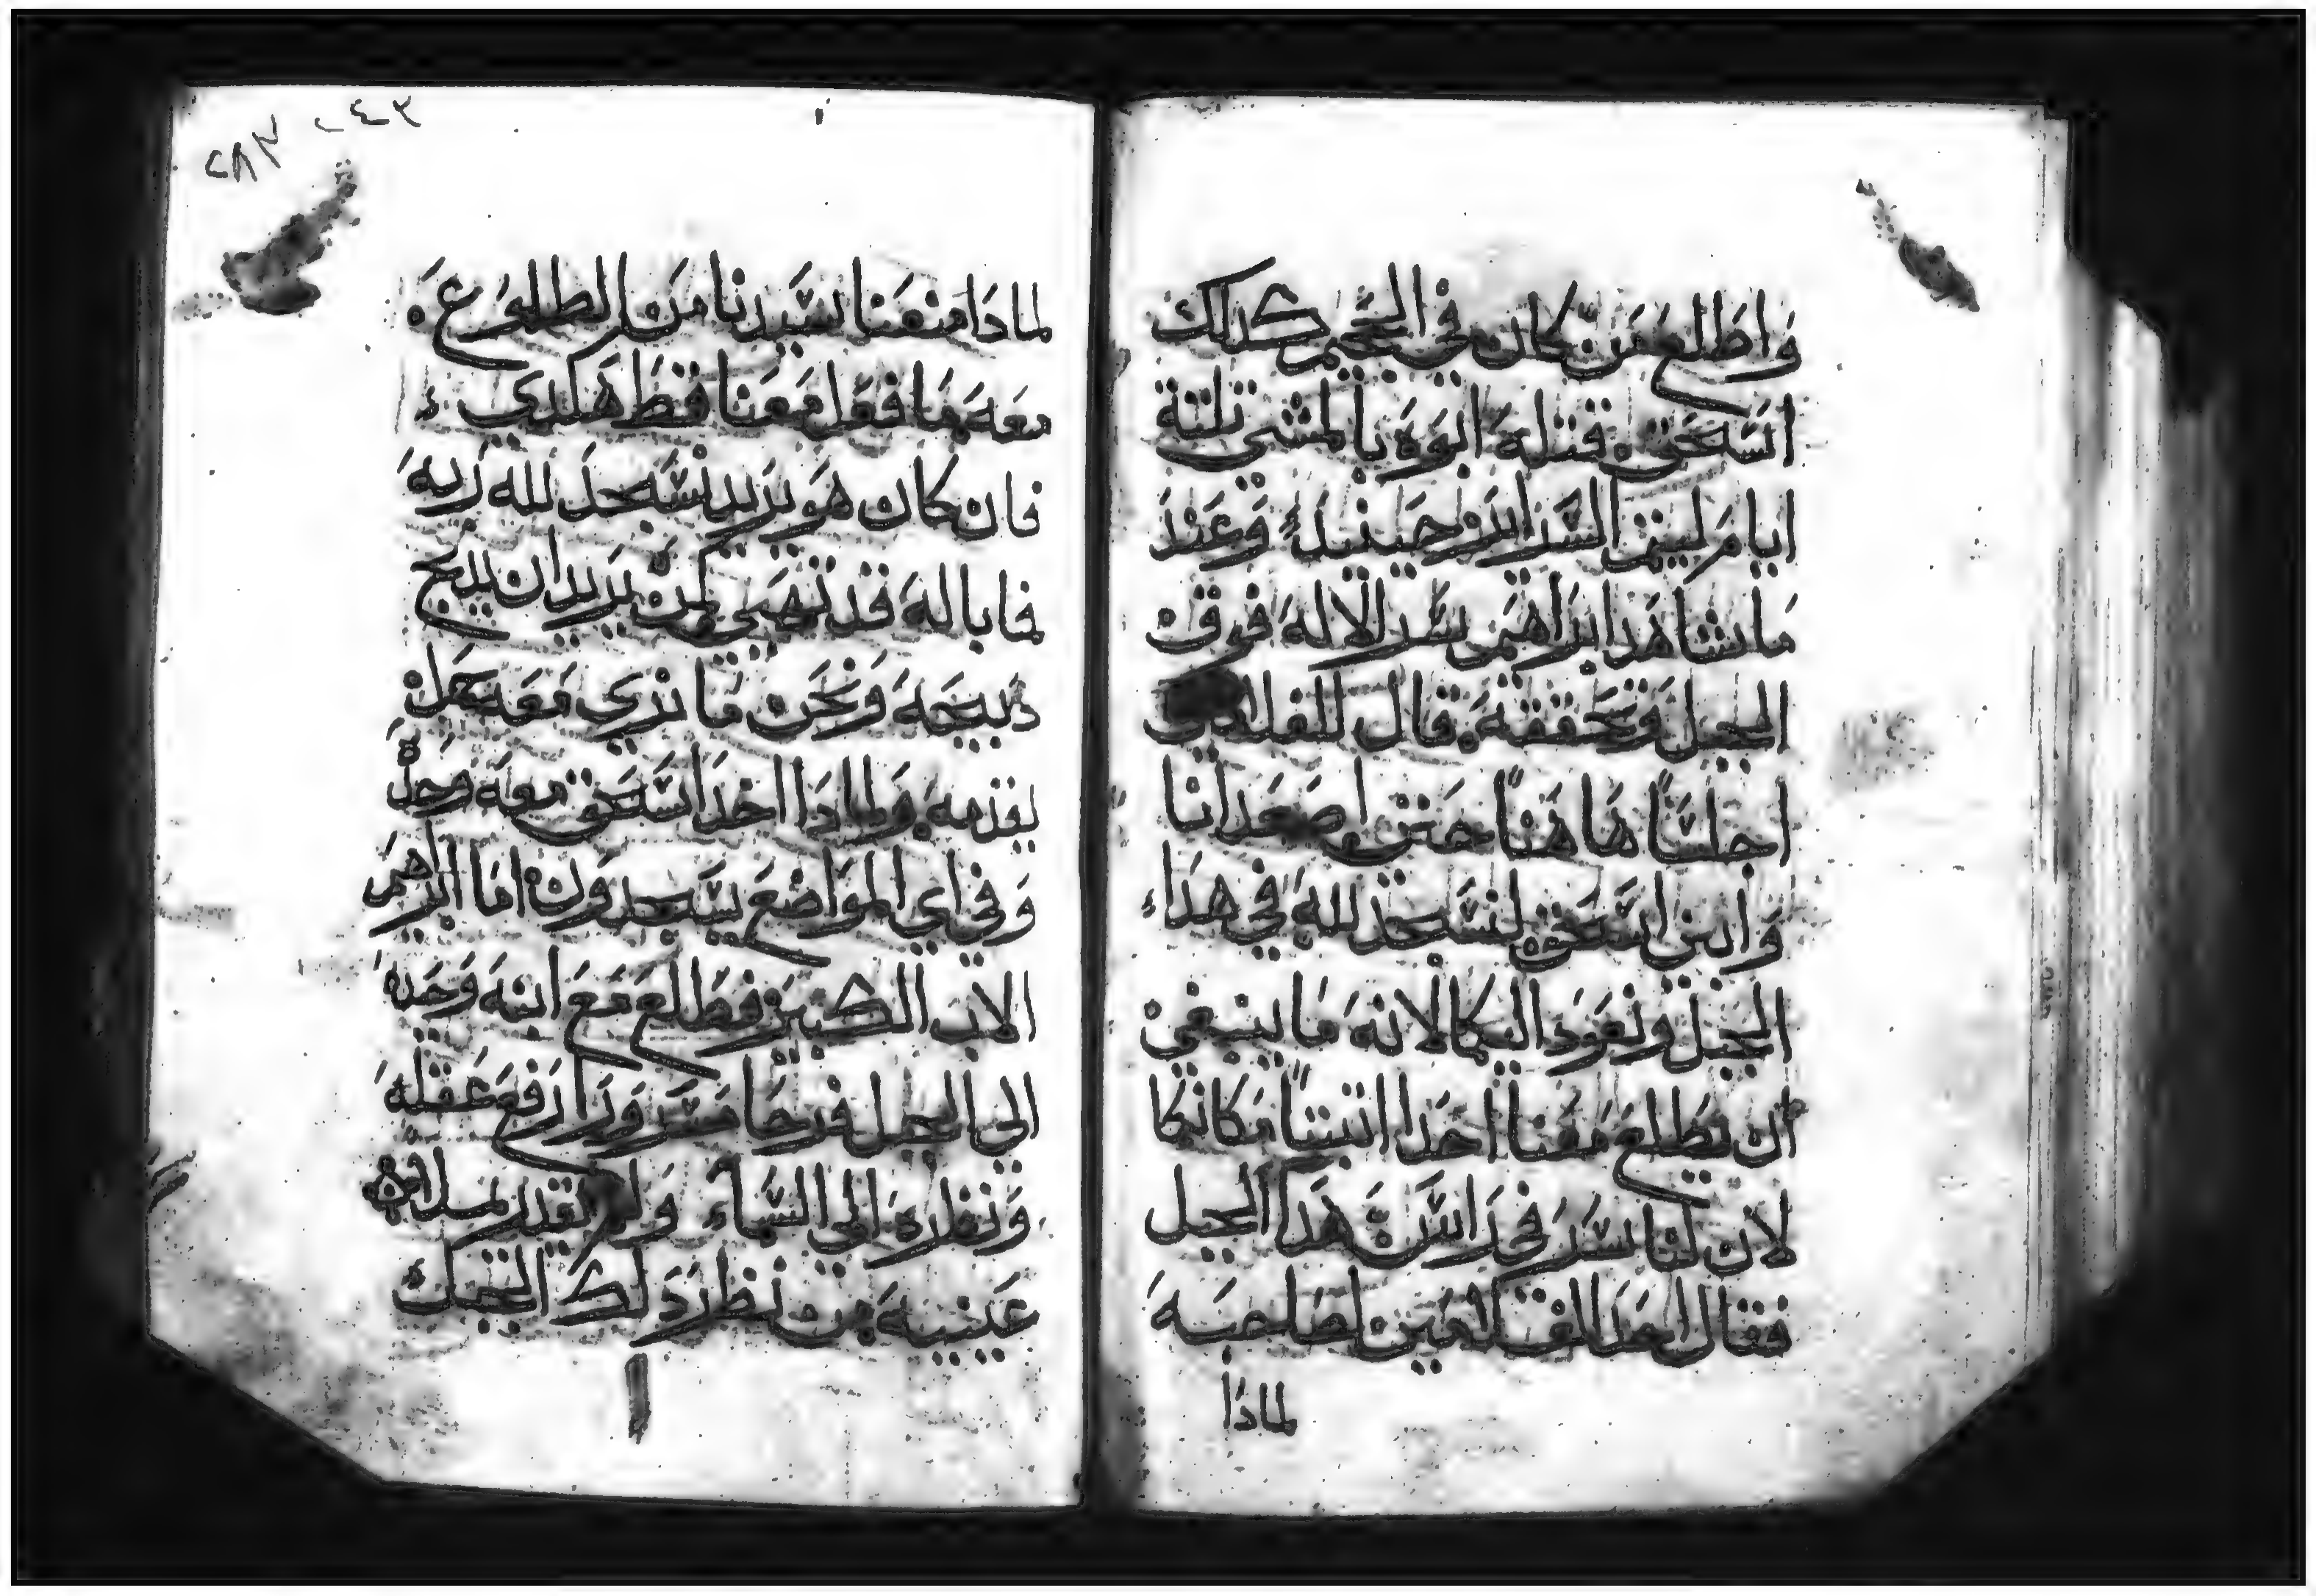 واطلع من كان في الجحيم كدلك
اسحق قتله ابوه بالمشي تلتة
ايام ليتم السر ابدو حينيد وعند
ما شاهد ابراهيم سر الاله فوق
الجبل وتحققه قال للغلامين
اجلسا هاهنا حتى اصعد انا
وابني اسحق لنسجد لله في هدا
الجبل ونعود اليكما لانه ما ينبغي
ان يطلع معنا احدا اتبتا مكانكما
لان لنا سر في راس هدا الجبل
فقال احد الغلامين لصاحبه
لمادا
لمادا منعنا سيدنا من الطلوع
معه ما فعل معنا قط هكدي
فان كان هو يريد يسجد لله ربه
فما باله قد تهيى كمن يريد ان يدبح
دبيحه ونحن ما نرى معه حمل
يقدمه ولمادا اخد اسحق معه وحده
وفي اي المواضع يسجدون اما ابراهيم
الاب الكبير فطلع مع ابنه وحده
الى الجبل فرحا مسرورا رفع عقله
ونظره الى السماء ولم يقدر يميل
عينيه من نظر دلك الجبل